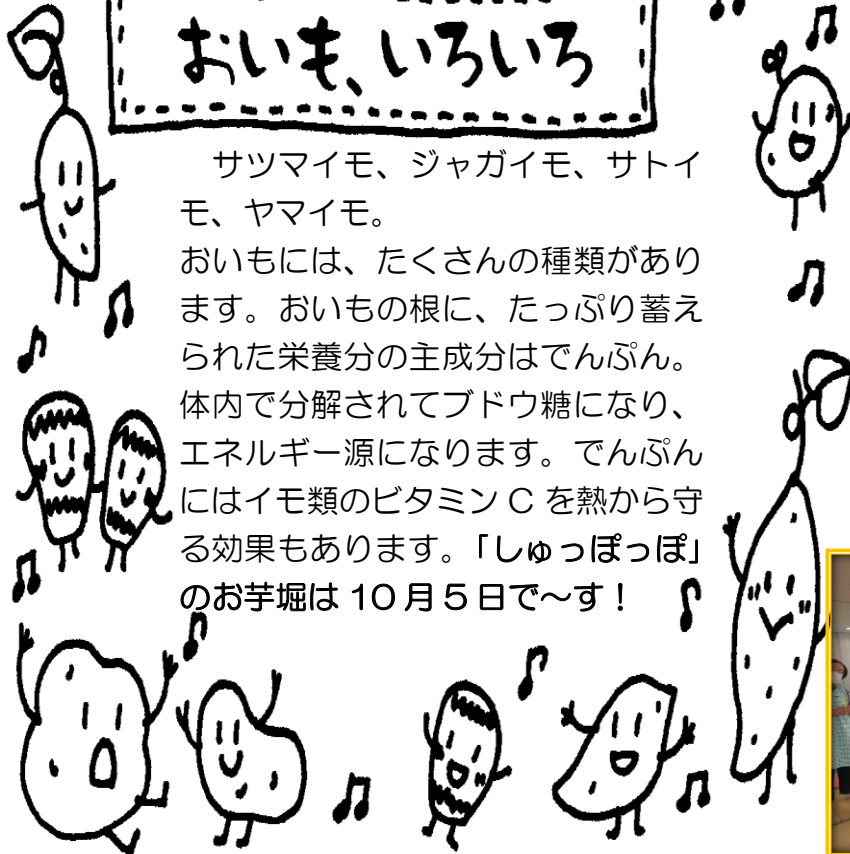 おいも、いろいろ
サツマイモ、ジャガイモ、サトイ
モ、ヤマイモ。
おいもには、たくさんの種類があり
ます。おいもの根に、たっぷり蓄え
られた栄養分の主成分はでんぷん。
体内で分解されてブドウ糖になり、
エネルギー源になります。でんぷん
にはイモ類のビタミン C を熱から守
る効果もあります。「しゅっぽっぽ」
のお芋堀は 10 月 5 日で～す！